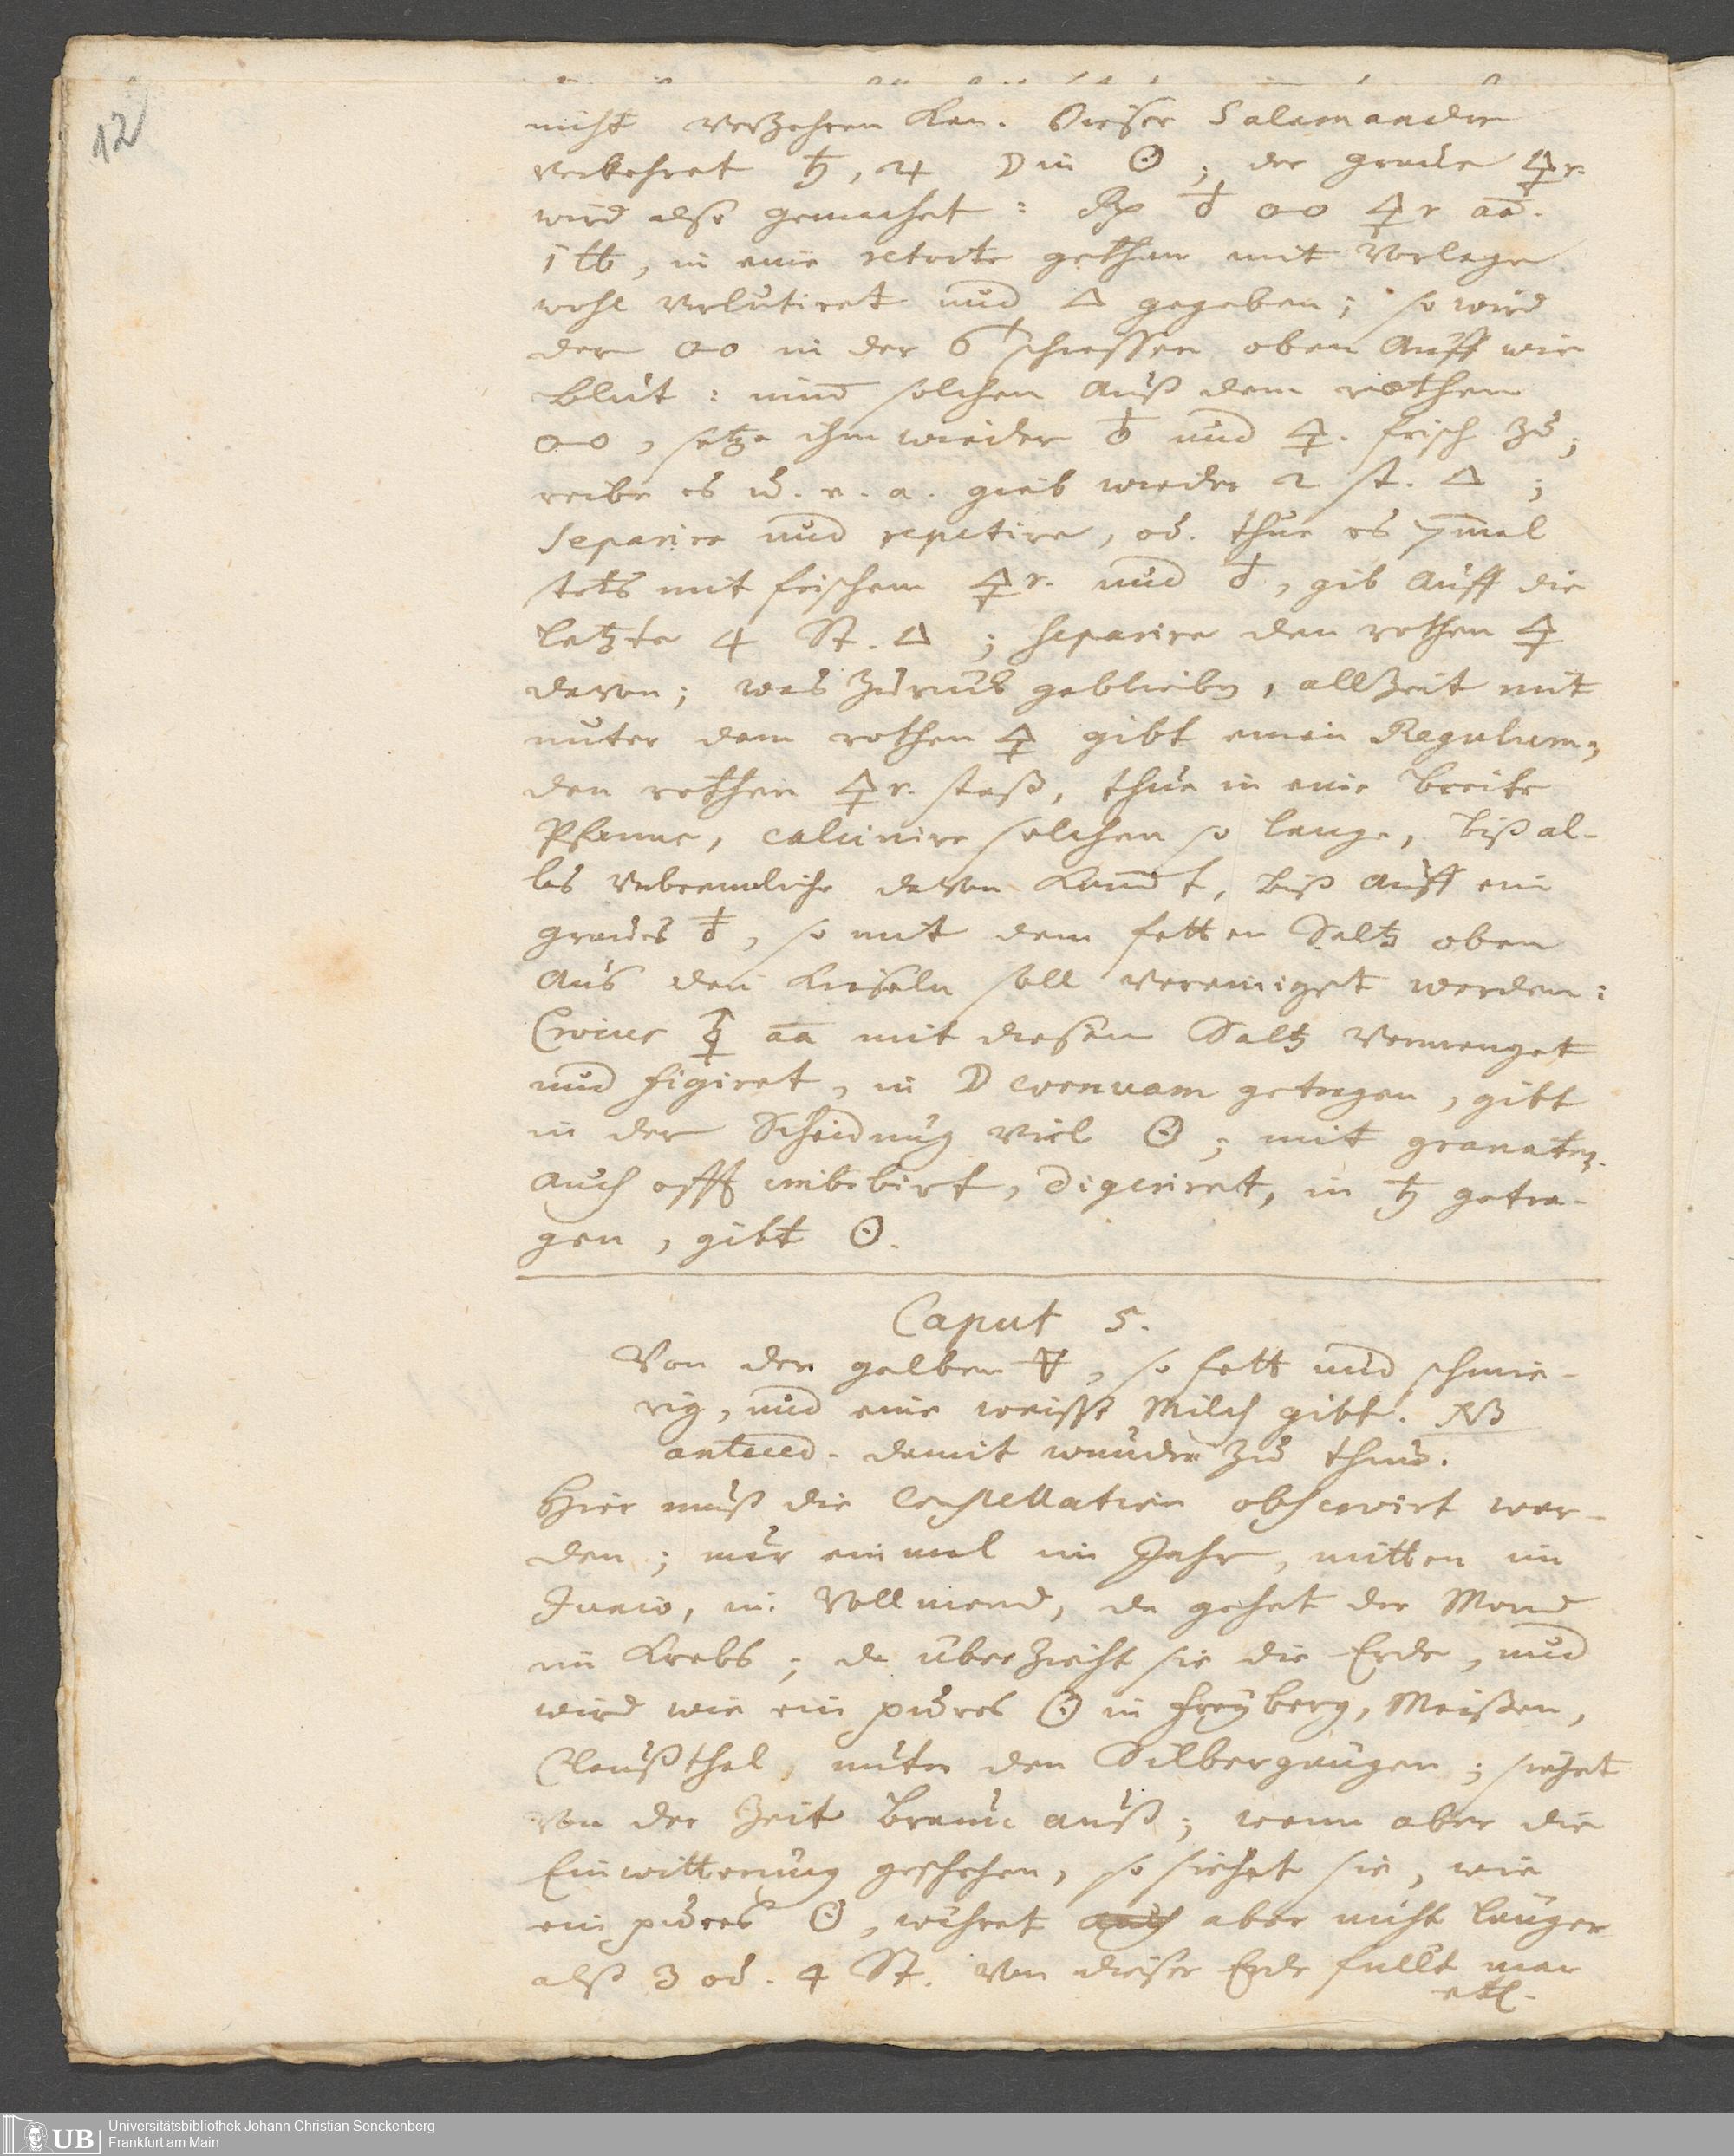 12
nicht verzehren kan. Dieser Salamander
verkehret ♄, ♃ ☽ in ☉; der graue 🜍r.
wird also gemachet: Rp ♁ o-o 🜍r aā.
1 ℔, in eine retorte gethan mit Vorlage
wohl verlutiret und 🜂 gegeben; so wird
der o-o in der schiessen oben auff wie
Blut: nim̄ solchen auß dem rothen
o-o, setze ihm wieder ♁ und 🜍. frisch zu;
reibe es u. n. a. gieb wieder 2 st. 🜂;
Separire und repetire, od. thue es 7mal
stets mit frischem 🜍r. und ♁, gib auff die
letzte 4 St. 🜂; separire den rothen 🜍
davon; was zuruck geblieben, allzeit mit
unter dem rothen 🜍 gibt einen Regulum;
den rothen 🜍r. stoß, thue in eine breite
Pfanne, calcinire solchen so lange, biß al-
les Unbrennliche davon kom̄t, biß auff ein
graues ♁, so mit dem fetten Saltz oben
aus den Kieseln soll vereiniget werden:
Crocus aā mit diesem Saltz vermenget
und figiret, in ☽ cornuam getragen, gibt
in der Scheidung viel ☉; mit granaten
auch offt imbibirt, digeriret, in ♄ getra-
gen, gibt ☉.
Caput 5.
Von der gelben 🜃, so fett und schmie-
rig, und eine weisse Milch gibt. NB
anteced. damit wunder zu thun.
Hier muß die Constellation observirt wer-
den; nur einmal im Jahr, mitten im
Junio, im Vollmond, da gehet der Mond
im Krebs; da überzieht sie die Erde, und
wird wie ein pures ☉ in Freyberg, Meißen,
Claußthal, unter den Silbergängen; siehet
von der Zeit braun auß; wenn aber die
Einwitterung geschehen, so siehet sie, wie
ein pures ☉, währet auch aber nicht länger
alß 3 od. 4 St. Von dieser Erde füllt man
etl.
Universitätsbibliothek Johann Christian Senckenberg
Frankfurt am Main
UB